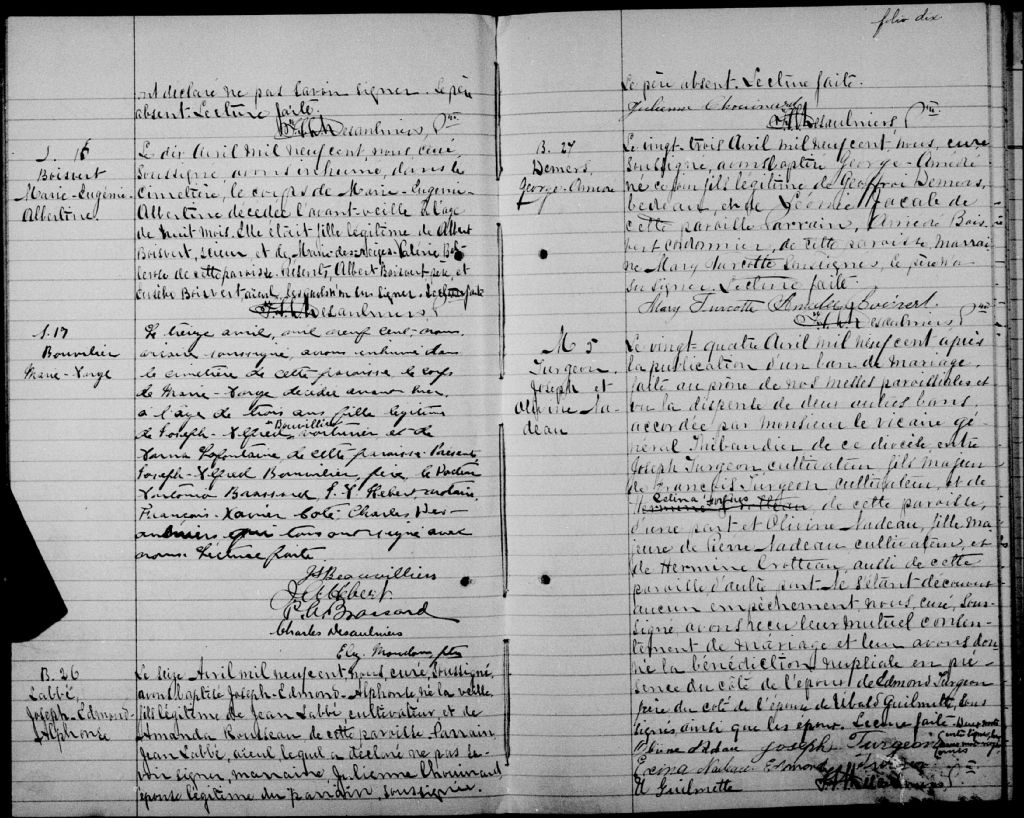 ont déclaré ne pas savoir signer. Le père
absent. Lecture faite.
Desaulniers, Ptre
S. 16
Boisvert
Marie-Eugénie-
Albertine
Le dix Avril mil neuf cent, nous, curé
soussigné, avons inhumé, dans le
cimetière, le corps de Marie-Eugénie-
Albertine décédée l'avant-veille à l'age
de huit mois. Elle était fille légitime de Albert
Boisvert, scieur, et de Marie-des-neiges-Valérie
de cette paroisse. Présents, Albert Boisvert père, et
Boisvert, aieul, lesquels n'ont su signer. Lecture faite
Desaulniers
S. 17
Bouvilier
Marie-
Le treize avril, mil neuf cent nous
vicaire soussigné, avons inhumé dans
le cimetière de cette paroisse le corps
de Marie- décédée avant hier,
à l'âge de trois ans fille légitime
de Joseph-Alfred Bouvillier voiturier et de
Lafontaine de cette paroisse. Présents
Joseph-Alfred Bouvilier père, le Docteur
Brassard, Hebert notaire,
François-Xavier Coté, Charles Des-
aulniers qui tous ont signé avec
nous. Lecture faite
JA Beauvilliers
Hebert
P. A. Brassard
Charles Desaulniers
Elz. Moudom ptre
B. 26
Labbé,
Joseph-Edmond-
Alphonse
Le seize Avril mil neuf cent, nous, curé, soussigné,
avons baptisé Joseph-Edmond-Alphonse, né la veille,
fils légitime de Jean Labbé cultivateur et de
Amanda Rousseau de cette paroisse. Parrain,
Jean Labbé, aieul lequel a déclaré ne pas sa-
voir signer, marraine Julienne Chouinard
épouse légitime du parrain, soussignée.
folio dix
Le père absent. Lecture faite.
Julienne Chouinard
Desaulniers, Ptre
B. 27
Demers,
George-Amédé
Le vingt-trois Avril mil neuf cent, nous, curé
soussigné, avons baptisé George-Amédé
né ce jour fils légitime de Geoffroi Demers,
bedeau, et de Léonie Lacasse de
cette paroisse. Parrain, Amédé Bois-
vert cordonnier, de cette paroisse, marrai-
ne Mary Turcotte soussignés, le père n'a
su signer. Lecture faite.
Mary Turcotte Amédé Boisvert
Desaulniers, Ptre
M 5
Turgeon,
Joseph et
Olivine Na-
deau
Le vingt-quatre Avril mil neuf cent après
la publication d'un ban de mariage,
faite au prône de nos messes paroissiales et
vu la dispense de deux autres bans,
accordée par Monsieur le vicaire gé-
néral Thibaudier de ce diocèse, entre
Joseph Turgeon, cultivateur, fils majeur
de François Turgeon cultivateur, et de
Célina de cette paroisse,
d'une part et Olivine Nadeau, fille ma-
jeure de Pierre Nadeau cultivateur, et
de Hermine Crotteau, aussi de cette
paroisse d'autre part. Ne s'étant découvert
aucun empêchement nous, curé, sous-
signé, avons reçu leur mutuel consen-
tement de mariage et leur avons don-
né la bénédiction nuptiale en pré-
sence du côté de l'époux de Edmond Turgeon
frère du côté de l'épouse de Ubald Guilmette, sous
signés ainsi que les époux. Lecture faite.
Joseph Turgeon
Nadeau Edmond Turgeon
U Guilmette